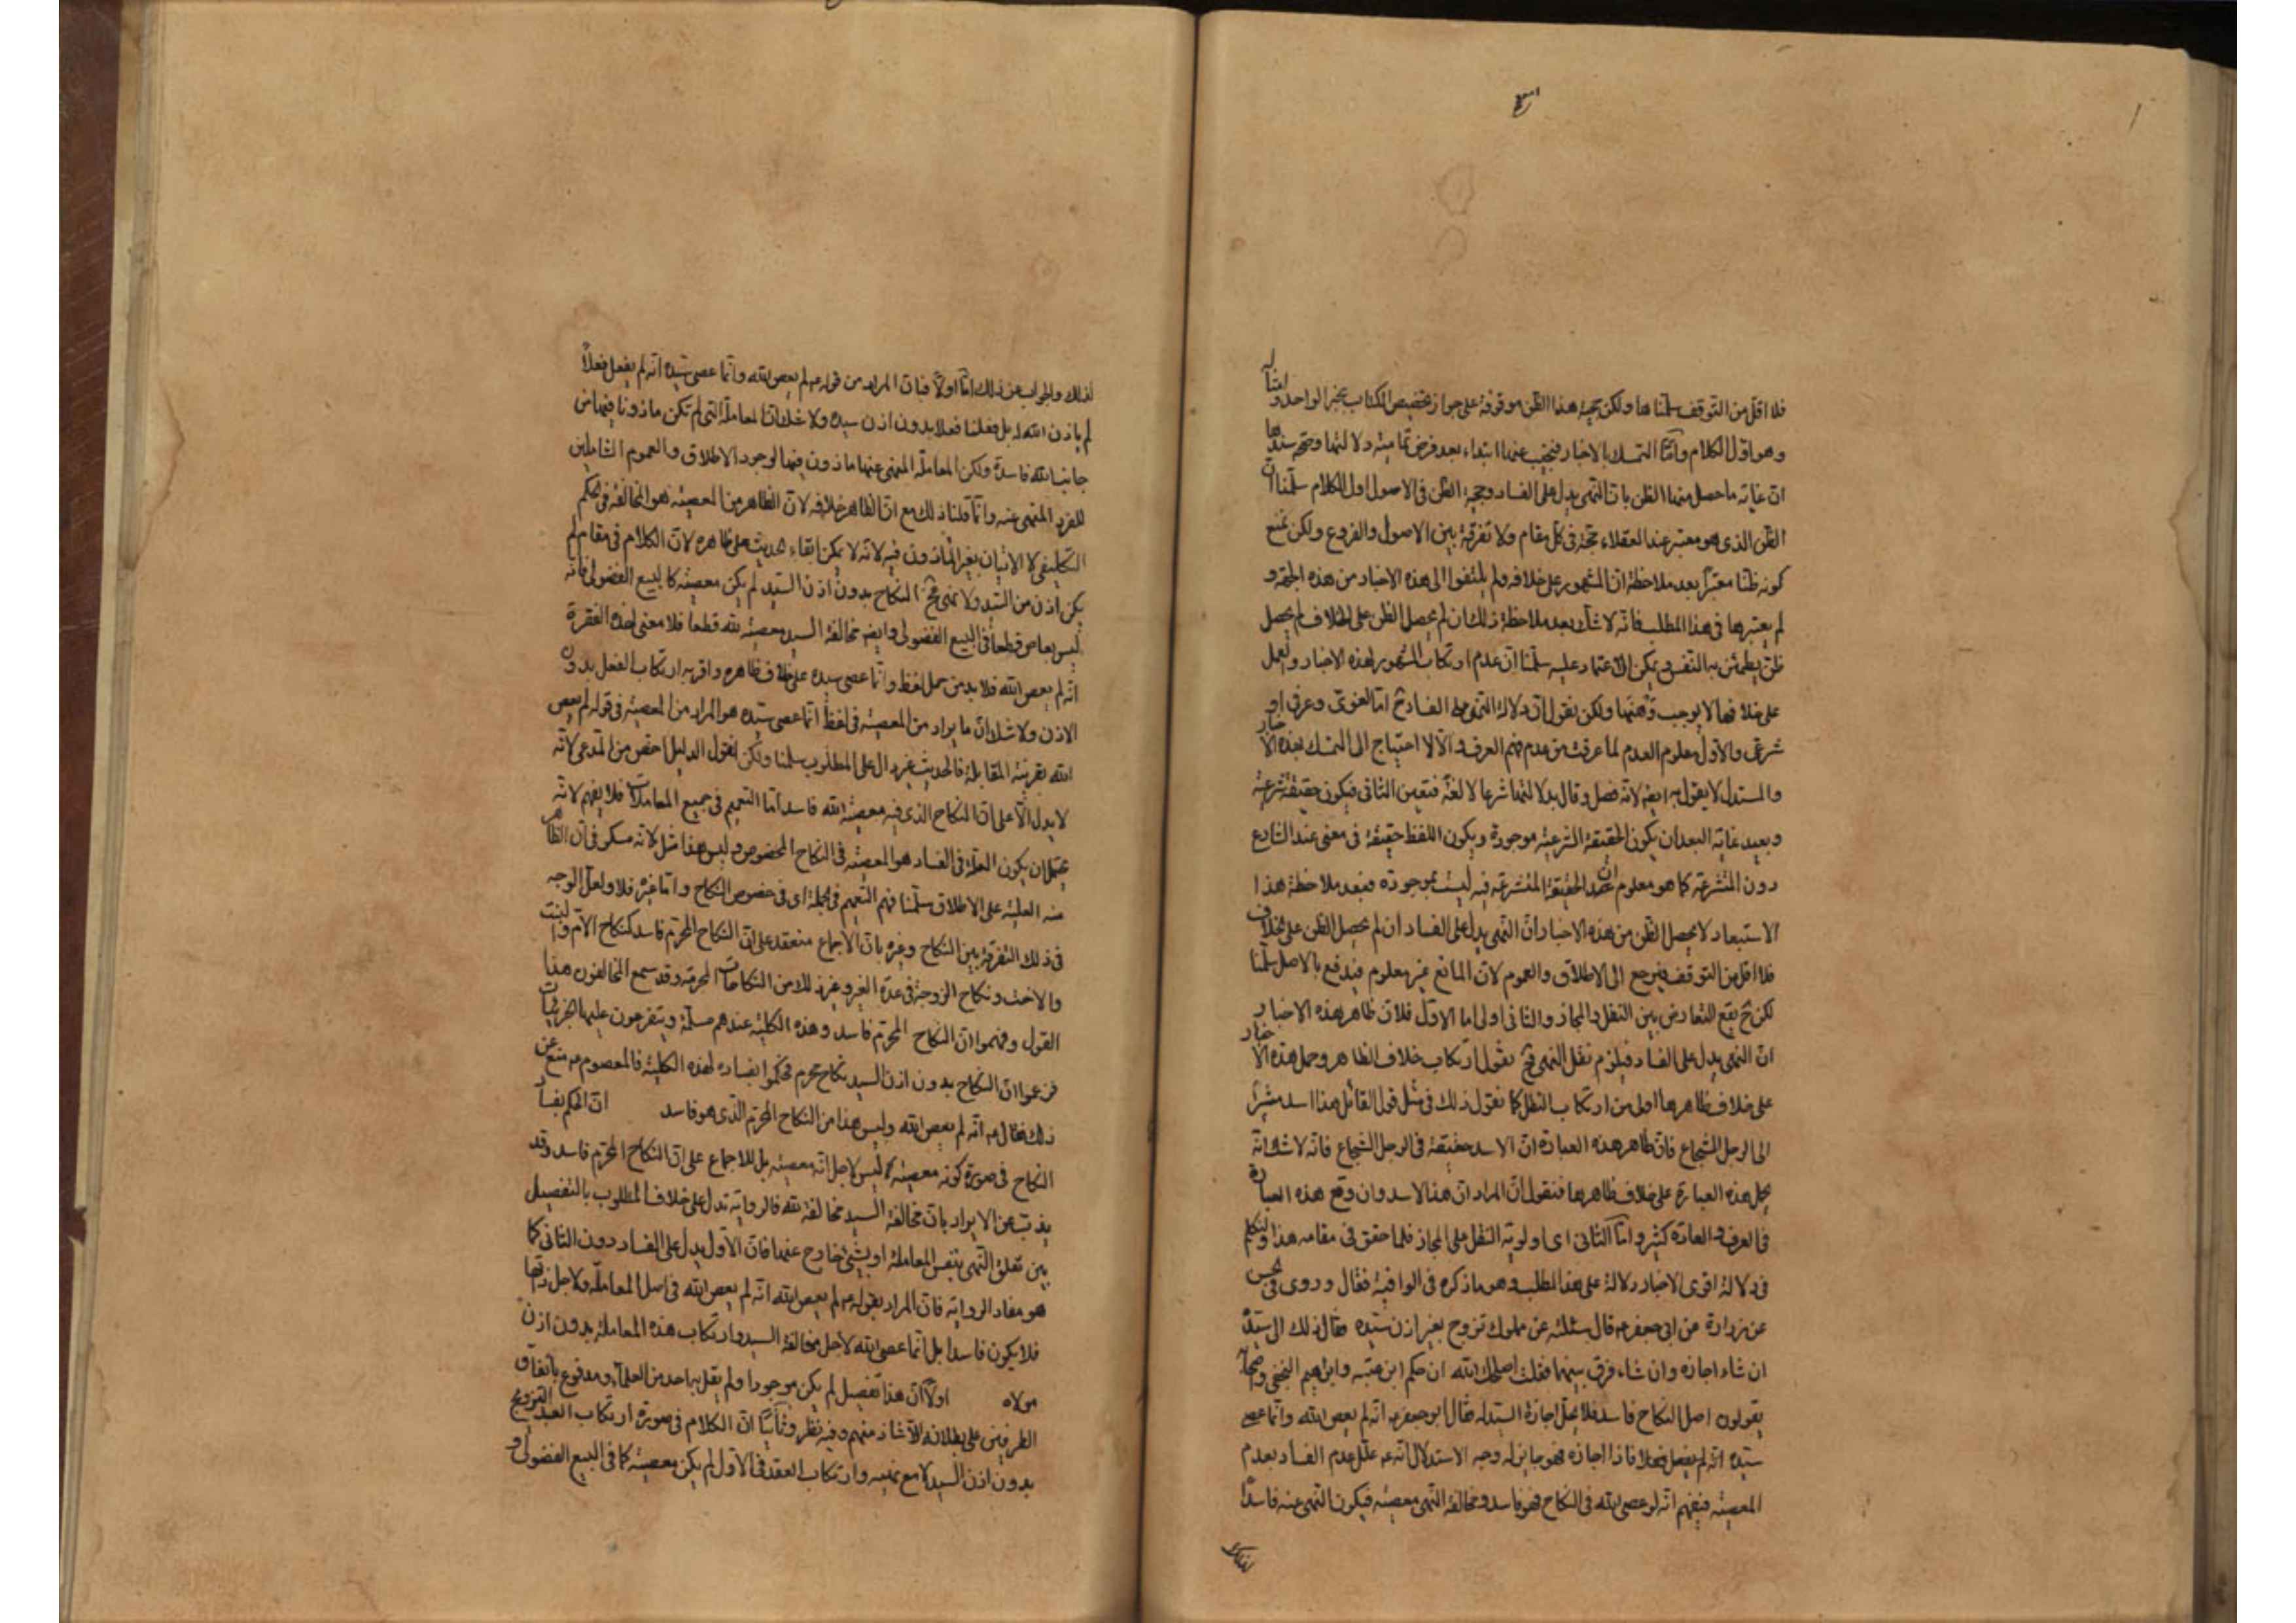 فلا اقل من التوقف سلمنا ها ولكن حجية هذا الظن موقوفة على جواز تخصيص الكتاب بخبر الواحد و
وهو اول الكلام واما التمسك بالاخبار فنجيب عنها ابتداء بعد فرض تمامية دلالتها وصحة سندها
ان غاية ما حصل منها الظن بان النهى يدل على الفساد وحجية الظن فى الاصول اول الكلام سلمنا ان
الظن الذى هو معتبر عند العقلاء حجة فى كل مقام ولا تفرقة بين الاصول والفروع ولكن نمنع
كونه ظنا معتبرا بعد ملاحظة ان المشهور على خلافه ولم يلتفوا الى هذه الاخبار من هذه الجهة و
لم يعتبرها فى هذا المطلب فانه لا شك بعد ملاحظة ذلك ان لم يحصل الظن على الخلاف لم يحصل
ظن يطمئن به النفس ويمكن الاعتماد عليه سلمنا ان عدم ارتكاب المشهور لهذه الاخبار والعمل
على خلافها لا يوجب وهنها ولكن نقول ان دلالة النهى على الفساد ح اما لغوى وعرفى او
شرعى والاول معلوم العدم لما عرفت من عدم فهم العرف والا لا احتياج الى التمسك بهذه الاخبار
والمستدل لا يقول به ايضا لانه فصل وقال بدلالتها شرعا لا لغة فتعين الثانى فيكون حقيقة شرعية
وبعيد غاية البعد ان يكون الحقيقة الشرعية موجودة ويكون اللفظ حقيقة فى معنى عند الشارع
دون المتشرعة كما هو معلوم ان الحقيقة المتشرعة فيه ليست بموجودة فبعد ملاحظة هذا
الاستبعاد لا يحصل الظن من هذه الاخبار ان النهى يدل على الفساد ان لم يحصل الظن على الخلاف
فلا اقل من التوقف فيرجع الى الاطلاق والعموم لان المانع غير معلوم فيدفع بالاصل سلمنا
لكن ح يقع التعارض بين النقل والمجاز والثانى اولى اما الاول فلان ظاهر هذه الاخبار
ان النهى يدل على الفساد فيلزم نقل النهى فح نقول ارتكاب خلاف الظاهر وحمل هذه الاخبار
على خلاف ظاهرها اولى من ارتكاب النقل كما نقول ذلك فى مثل قول القائل هذا اسد مشيرا
الى الرجل الشجاع فان ظاهر هذه العبارة ان الاسد حقيقة فى الرجل الشجاع فانه لا شك انه
يحمل هذه العبارة على خلاف ظاهرها فنقول ان المراد ان هذا كالاسد وان وقع هذه العبارة
فى العرف والعادة كثير واما الثانى اى اولوية النقل على المجاز فلما حقق فى مقامه هذا ولنتكلم
فى دلالة اقوى الاخبار دلالة على هذا المطلب وهو ما ذكره فى الوافية فقال وروى فى الحسن
عن زرارة عن ابى جعفر ع قال سئلته عن مملوك تزوج بغير اذن سيده فقال ذلك الى سيده
ان شاء اجازه وان شاء فرق بينهما فقلت اصلحك الله ان حكم ابن عتبه وابراهيم النخعى واصحابهما
يقولون اصل النكاح فاسد فلا يحل اجازة السيد له فقال ابو جعفر ع انه لم يعص الله وانما عصى
سيده انه لم يفعل فعلا فاذا اجازه فهو جايز له وجه الاستدلال انه ع علل عدم الفساد بعدم
المعصية فيفهم انه لو عصى الله فى النكاح فهو فاسد ومخالفة النهى معصية فيكون النهى عنه فاسدا
لذلك والجواب عن ذلك اما اولا فبان المراد من قوله ع لم يعص الله وانما عصى سيده انه لم يفعل فعلا
لم ياذن الله له بل فعلنا فعلا بدون اذن سيده ولا شك ان المعاملة التى لم تكن ماذونا فيها من
جانب الله فاسدة ولكن المعاملة المنهى عنها ماذون فيها لوجود الاطلاق والعموم الشاملين
للفرد المنهى عنه وانما قلنا ذلك مع ان الظاهر خلافه لان الظاهر من المعصية هو المخالفة فى الحكم
التكليفى لا الاتيان بغير الماذون فيه لانه لا يمكن ابقاء الحديث على ظاهره لان الكلام فى مقام لم
يكن اذن من السيد ولا نهى فح النكاح بدون اذن السيد لم يكن معصية كالبيع الفضولى فانه
ليس بعاص قطعا فى البيع الفضولى وايضا مخالفة السيد معصية لله قطعا فلا معنى لهذه الفقرة
انه لم يعص الله فلا بد من حمل لفظ وانما عصى سيده على خلاف ظاهره واقربه ارتكاب الفعل بدون
الاذن ولا شك ان ما يراد من المعصية فى لفظ انما عصى سيده هو المراد من المعصية فى قوله لم يعص
الله بقرينة المقابلة فالحديث غير دال على المطلوب سلمنا ولكن نقول الدليل اخص من المدعى لانه
لا يدل الا على ان النكاح الذى فيه معصية الله فاسد اما التعميم فى جميع المعاملات فلا يفهم لانه
يحتمل ان يكون العلة فى الفساد هو المعصية فى النكاح المخصوص وليس هذا مثل لانه مسكر فى ان الظاهر
منه العلية على الاطلاق سلمنا فهم التعميم فى الجملة اى فى خصوص النكاح واما غيره فلا ولعل الوجه
فى ذلك التفرقة بين النكاح وغيره بان الاجماع منعقد على ان النكاح المحرم فاسد كنكاح الام والبنت
والاخت ونكاح الزوجة فى عدة الغير وغير ذلك من النكاحات المحرمة وقد سمع المخالفون هذا
القول وفهموا ان النكاح المحرم فاسد وهذه الكلية عندهم مسلمة ويتفرعون عليها الجزئيات
فزعموا ان النكاح بدون اذن السيد نكاح محرم فحكموا بفساده لهذه الكلية فالمعصوم ع منع عن
ذلك فقال ع انه لم يعص الله وليس هذا من النكاح المحرم الذى هو فاسد ان الحكم بفساد
النكاح فى صورة كونه معصية ليس لاجل انه معصية بل للاجماع على ان النكاح المحرم فاسد وقد
يذب عن الايراد بان مخالفة السيد مخالفة لله فالرواية تدل على خلاف المطلوب بالتفصيل
بين تعلق النهى بنفس المعاملة او بشئ خارج عنها فان الاول يدل على الفساد دون الثانى كما
هو مفاد الرواية فان المراد بقوله ع لم يعص الله انه لم يعص الله فى اصل المعاملة ولاجل ذاتها
فلا يكون فاسدا بل انما عصى الله لاجل مخالفة السيد وارتكاب هذه المعاملة بدون اذن
مولاه اولا ان هذا تفصيل لم يكن موجودا ولم يقل به احد من العلماء ومدفوع باتفاق
الطرفين على بطلانه الا شاذ منهم وفيه نظر وثانيا ان الكلام فى صورة ارتكاب العبد التزويج
بدون اذن السيد لا مع نهيه وارتكاب العقد فى الاول لم يكن معصية كما فى البيع الفضولى و